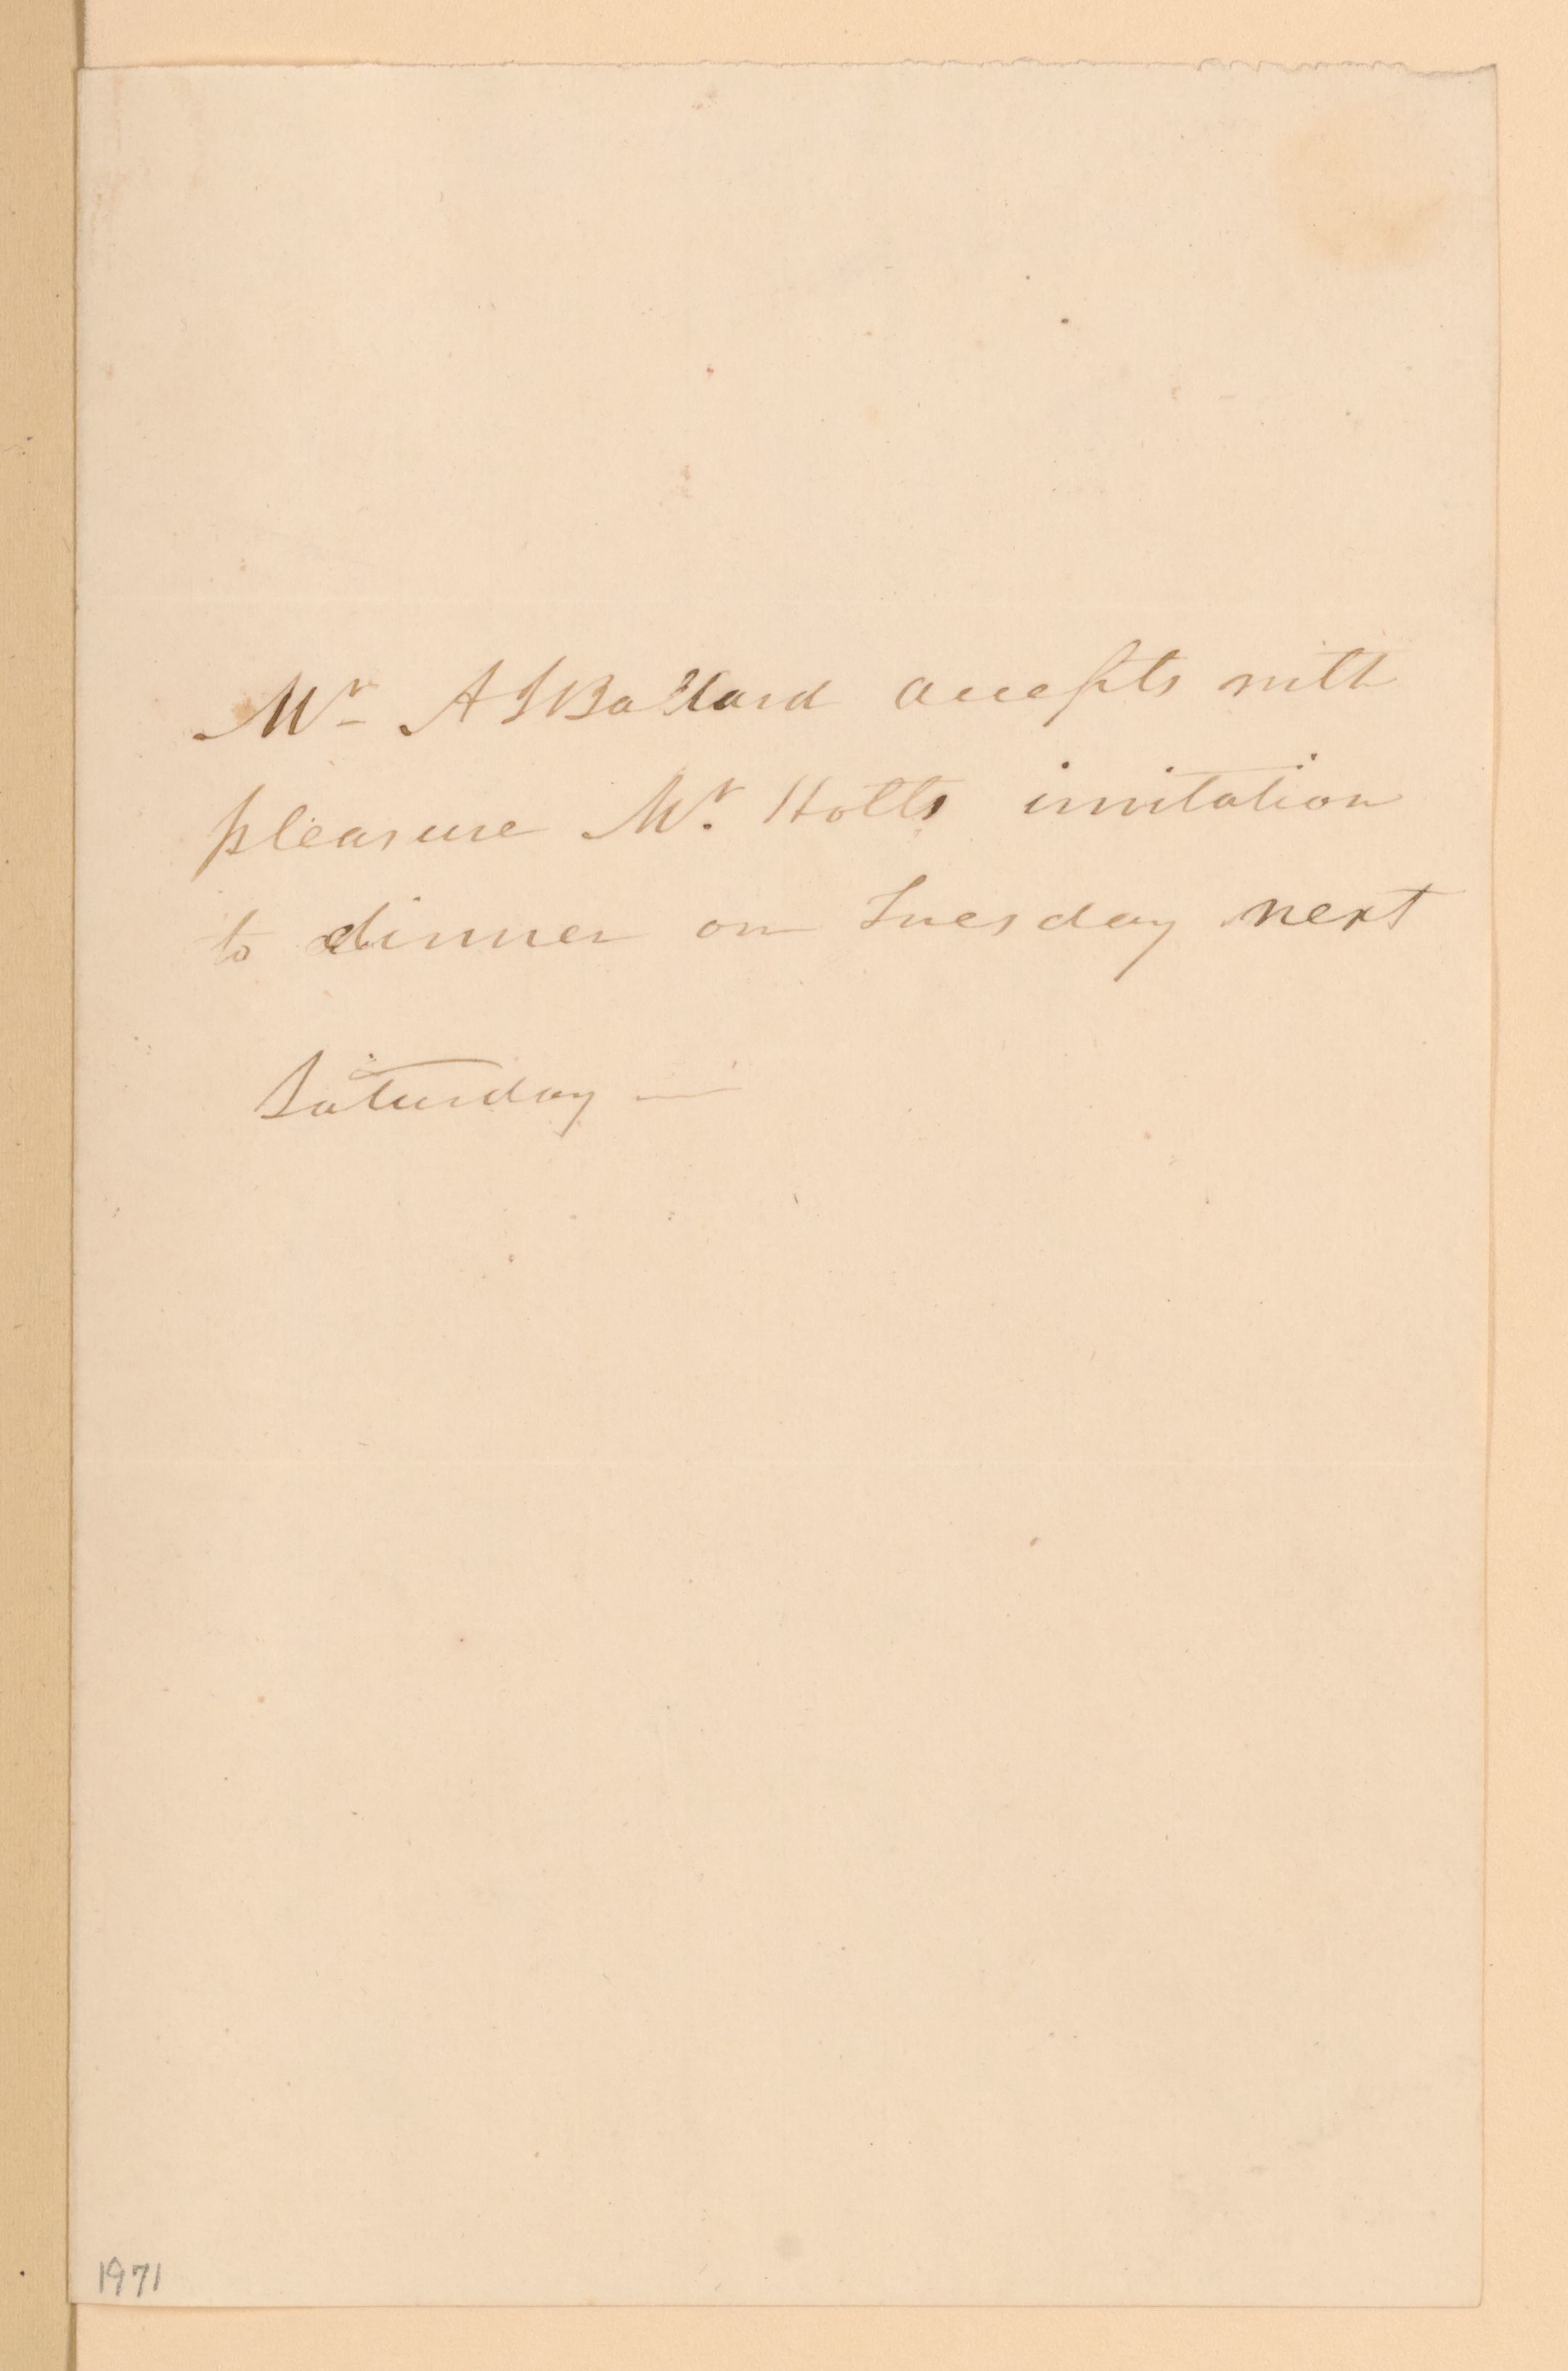 Mr A S Ballard accepts with
pleasure Mr. Holts invitation
to dinner on Tuesday next
Saturday —
1971